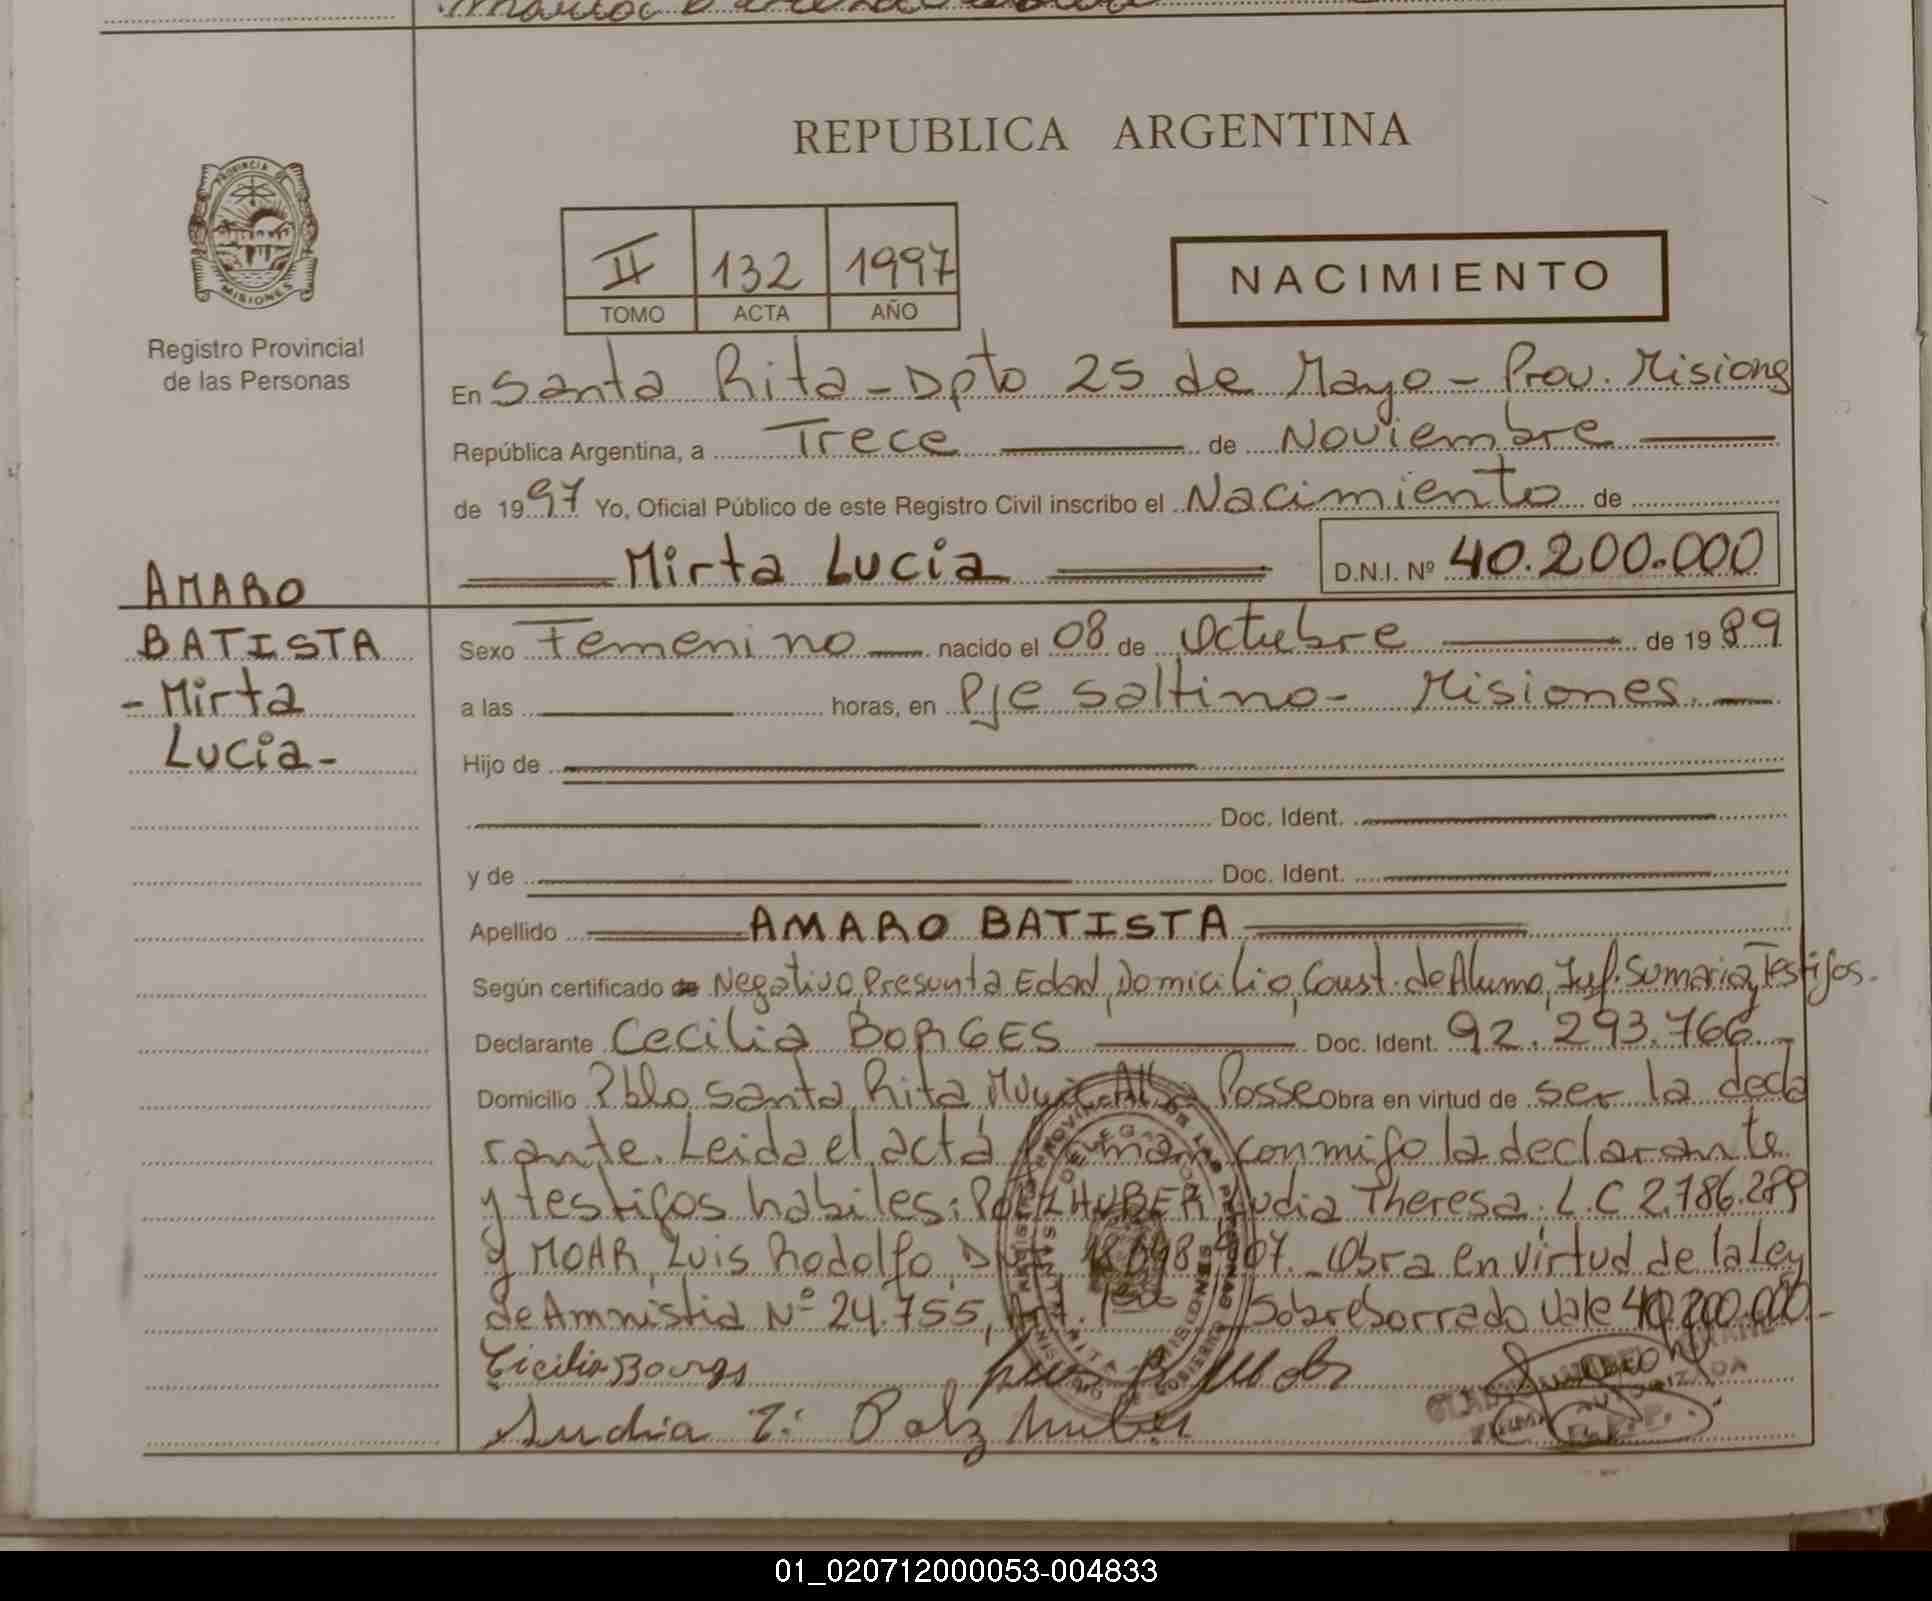 REPUBLICA ARGENTINA
PROVINCIA DE MISIONES
Registro Provincial
de las Personas
II 132 1997
TOMO ACTA AÑO
NACIMIENTO
En Santa Rita - Dpto 25 de Mayo - Prov. Misiones
República Argentina, a Trece de Noviembre
de 1997 Yo, Oficial Público de este Registro Civil inscribo el Nacimiento de
Mirta Lucia D.N.I. Nº 40.200.000
AMARO
BATISTA
- Mirta
Lucia -
Sexo Femenino nacido el 08 de Octubre de 1989
a las horas, en Pje Saltino - Misiones.
Hijo de
Doc. Ident.
y de Doc. Ident.
Apellido AMARO BATISTA
Según certificado de Negativo, Presunta Edad, Domicilio, Const. de Alumno, Inf. Sumaria y Testigos.
Declarante Cecilia BORGES Doc. Ident. 92.293.766.-
Domicilio Pblo Santa Rita Alba Posse obra en virtud de ser la decla
rante. Leida el actá conmigo la declarante
y testigos habiles: POLZHUBER, Ludia Theresa. L.C 2.786.289
y MOHR, Luis Rodolfo, Obra en virtud de la Ley
de Amnistia Nº 24.755, Art. 1 Sobreborrado Vale 40.200.000.-
Cicilia Borgs
Ludia T. Polzhuber
01_020712000053-004833